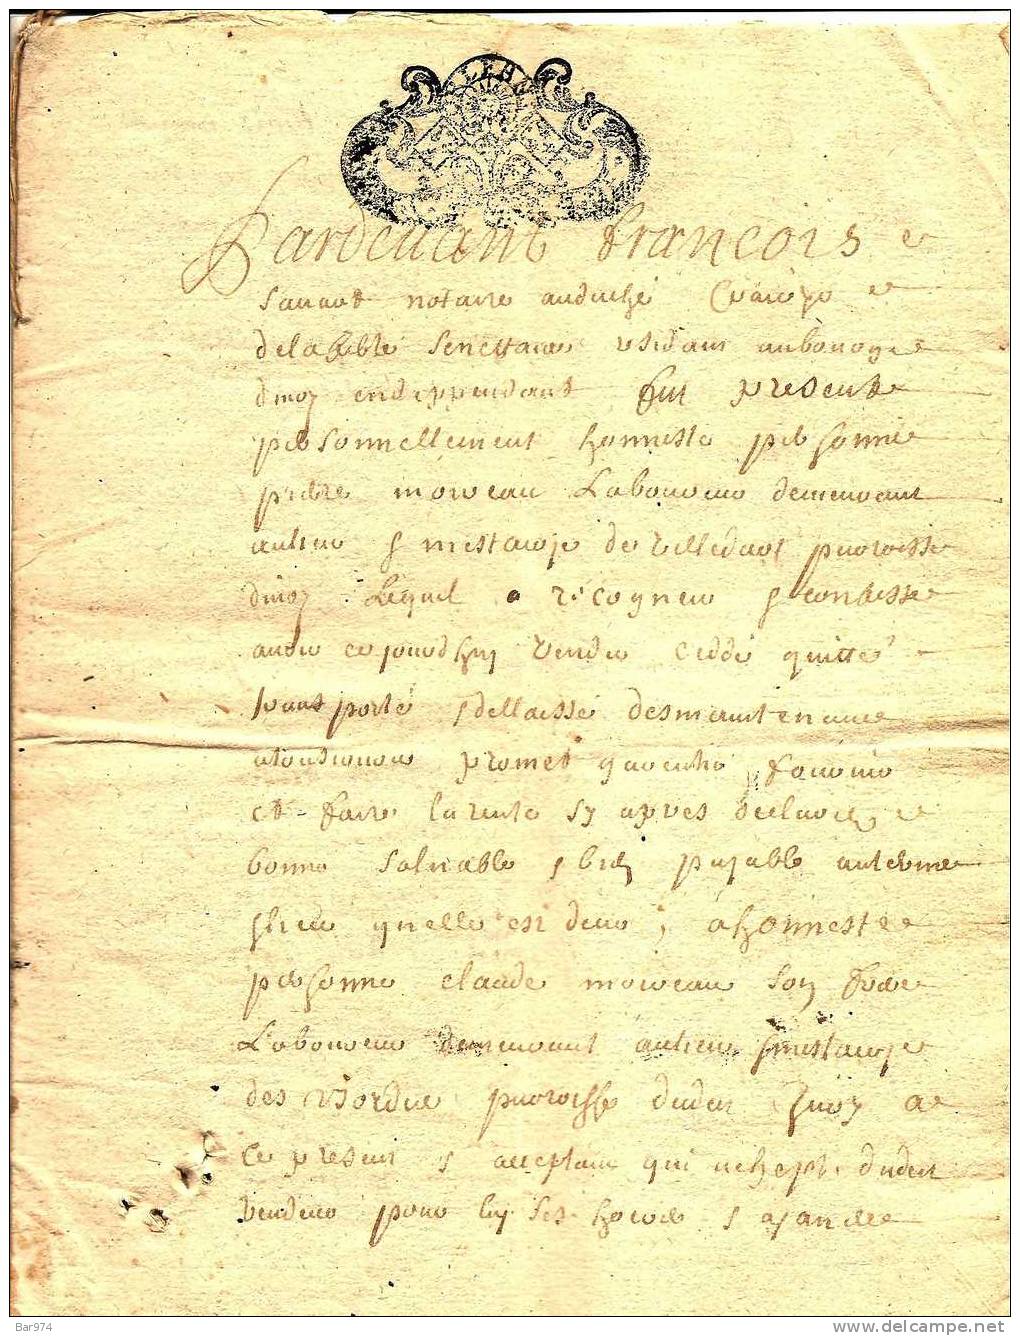 Pardevant francois
notaire au duché
de la ferté Senettaire residant au bourg
dinoy en deppendant fut present
personnellement honneste personne
pierre moreau Laboureur demeurant
au lieu & mestairye de paroisse
dinoy Lequel a recogneu & confesse
avoir ce jourdhuy vendu ceddé quitté
transporté & dellaissé des maintenant
a tousiours promet garentir fournir
et faire la rente cy apres
bonne & bien payable au terme
& lieu quelle est deue ; a honneste
personne claude moreau son frere
Laboureur demeurant au lieu & mestairye
des paroisse dudit Inoy a
ce present & acceptant qui achepte dudit
vendeur pour luy ses hoirs &
Bar974
www.delcampe.net